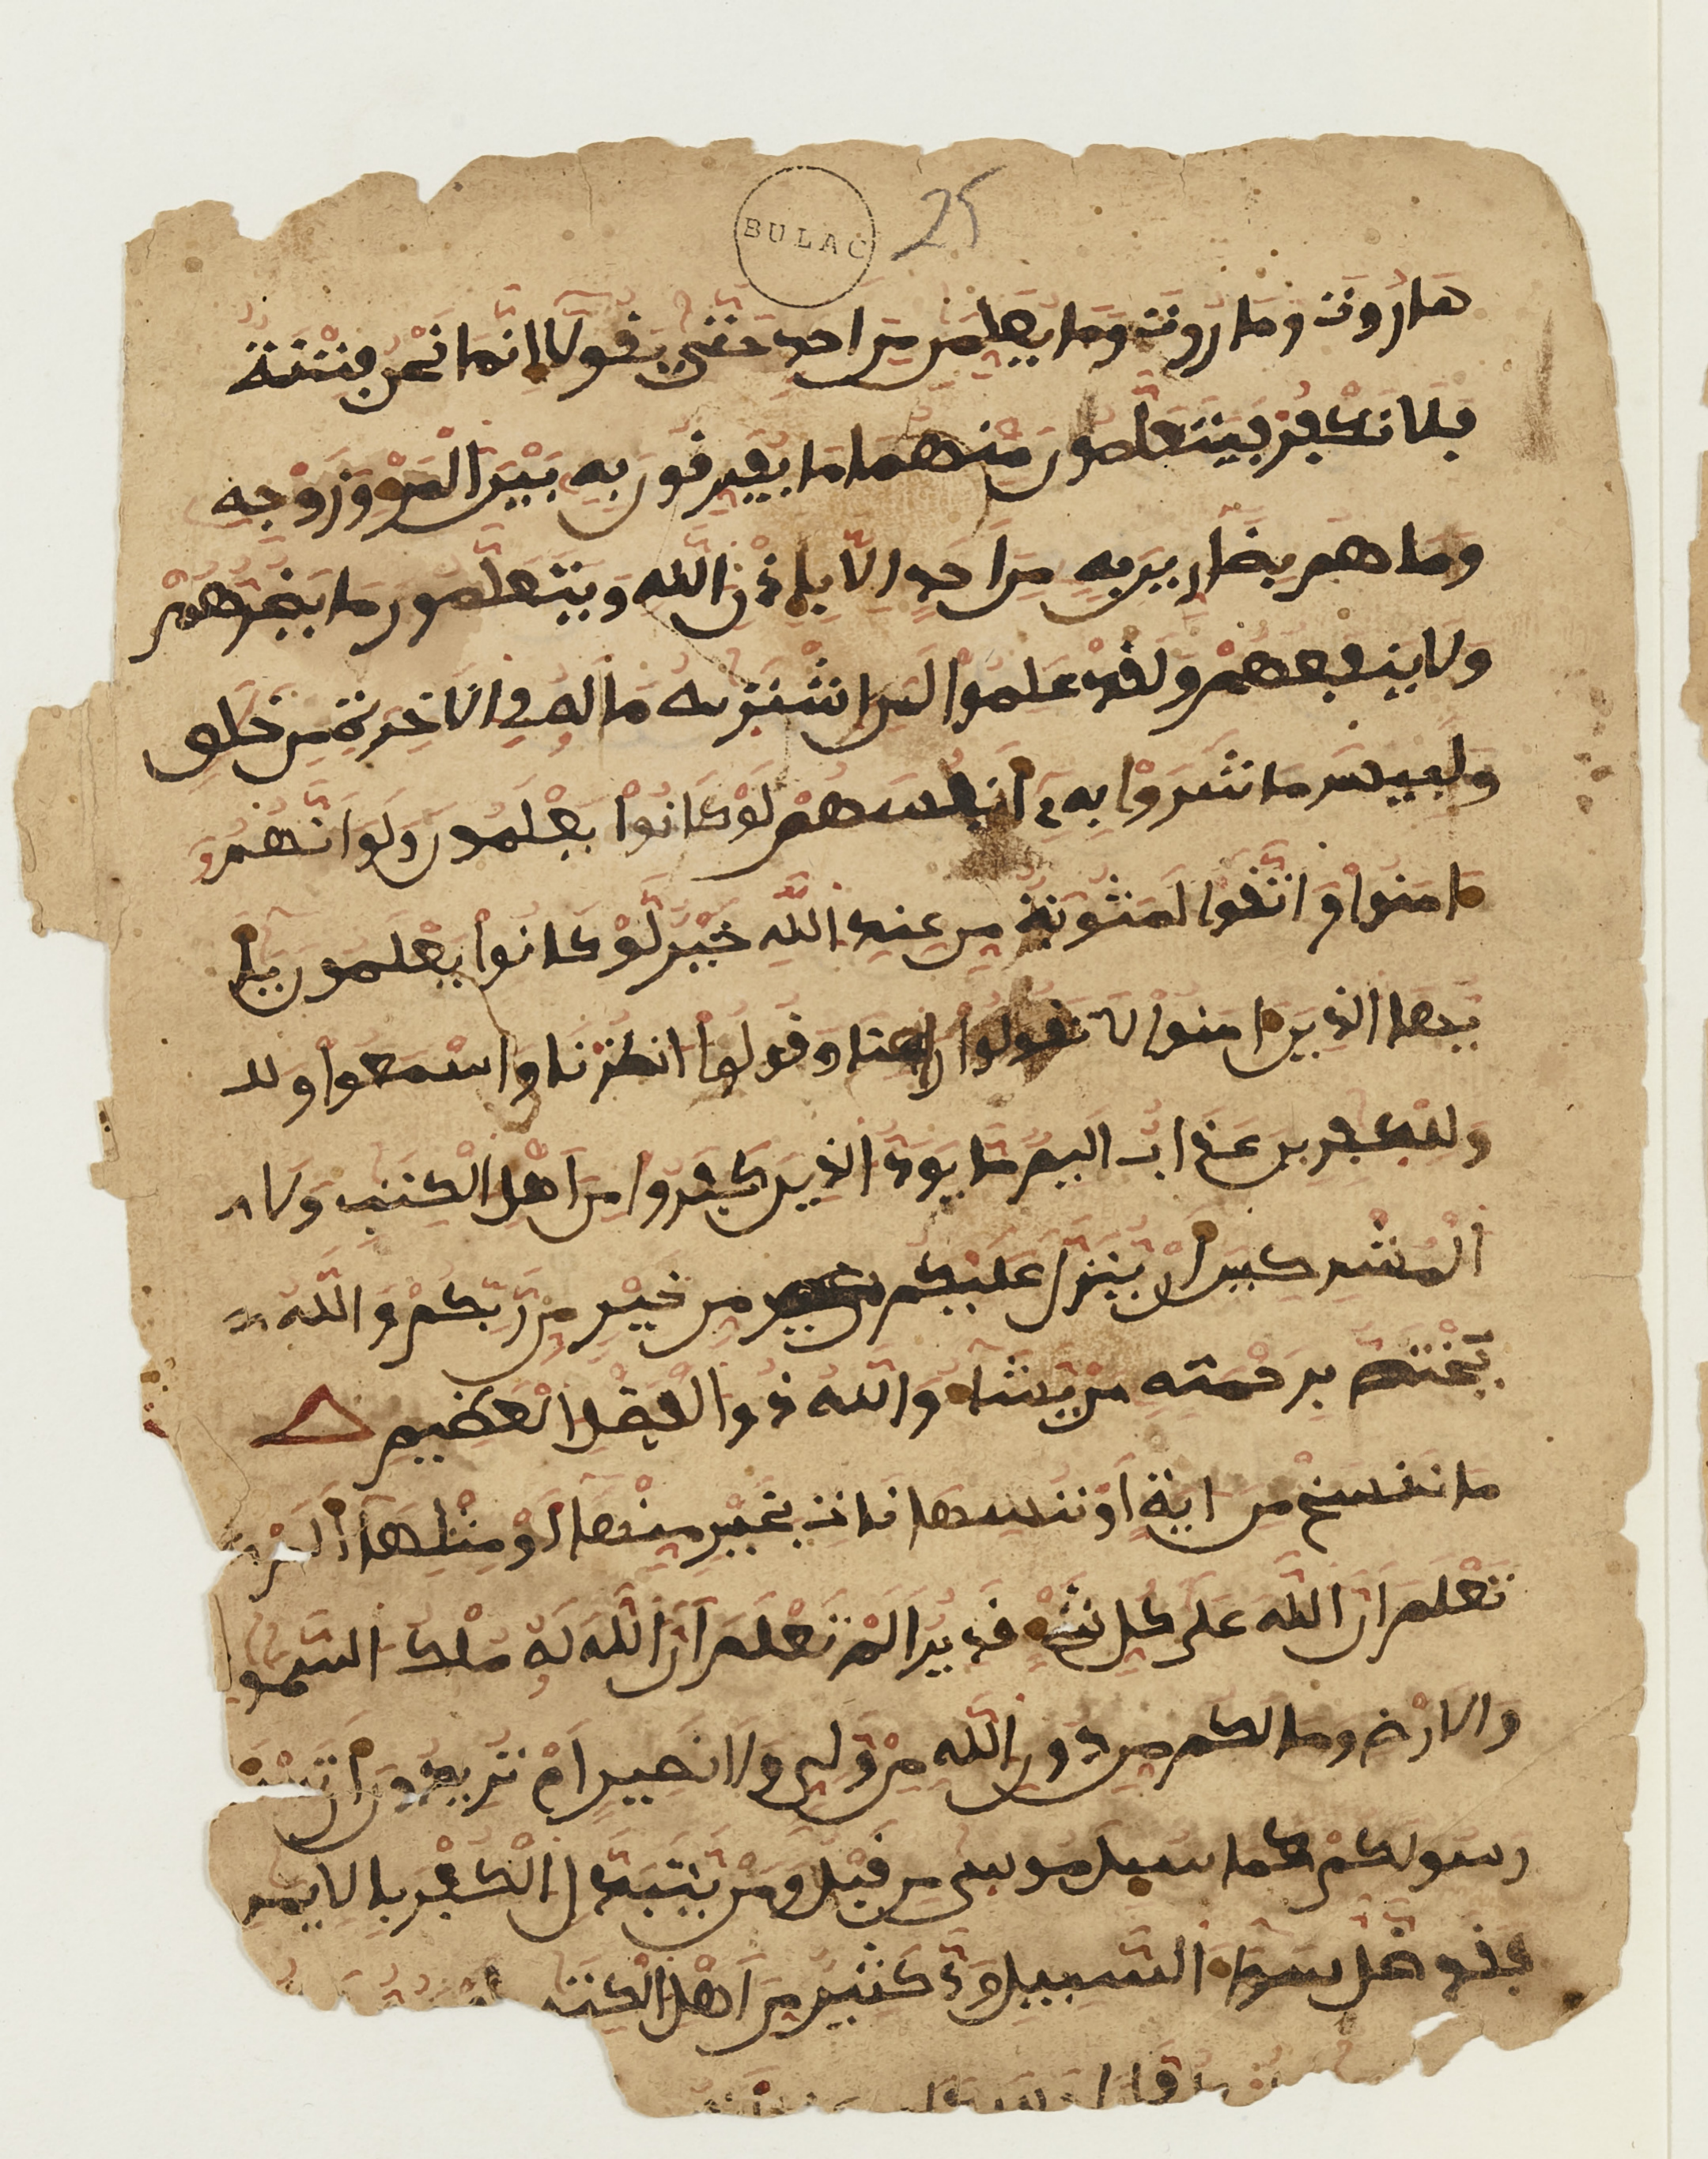 BULAC 25
هاروت وماروت وما يعلمن من احد حتى يقولا انما نحن فتنة
فلا تكفر فيتعلمون منهما ما يفرقون به بين المرء وزوجه
وما هم بضارين به من احد الا باذن الله ويتعلمون ما يضرهم
ولا ينفعهم ولقد علموا لمن اشتريه ما له في الاخرة من خلق
ولبيس ما شروا به أنفسهم لو كانوا يعلمون ولو انهمو
ءامنوا واتقوا لمثوبة من عند الله خير لو كانوا يعلمون يأ
يها الذين ءامنوا لا تقولوا راعنا وقولوا انظرنا واسمعوا ولل
وللكفرين عذاب اليم ما يود الذين كفروا من اهل الكتب ولا
المشركين أن ينزل عليكم من خير من ربكم والله
يختص برحمته من يشاء والله ذو الفضل العظيم
ما ننسخ من اية أو ننسها نات بخير منها أو مثلها ألم
تعلم ان الله على كل شيء قدير الم تعلم ان الله له ملك السمو
والارض وما لكم من دون الله من ولي ولا نصير ام تريدون أن
رسولكم كما سيل موسى من قبل ومن يتبدل الكفر بالايم
فقد ضل سواء السبيل ود كثير من اهل الكتب